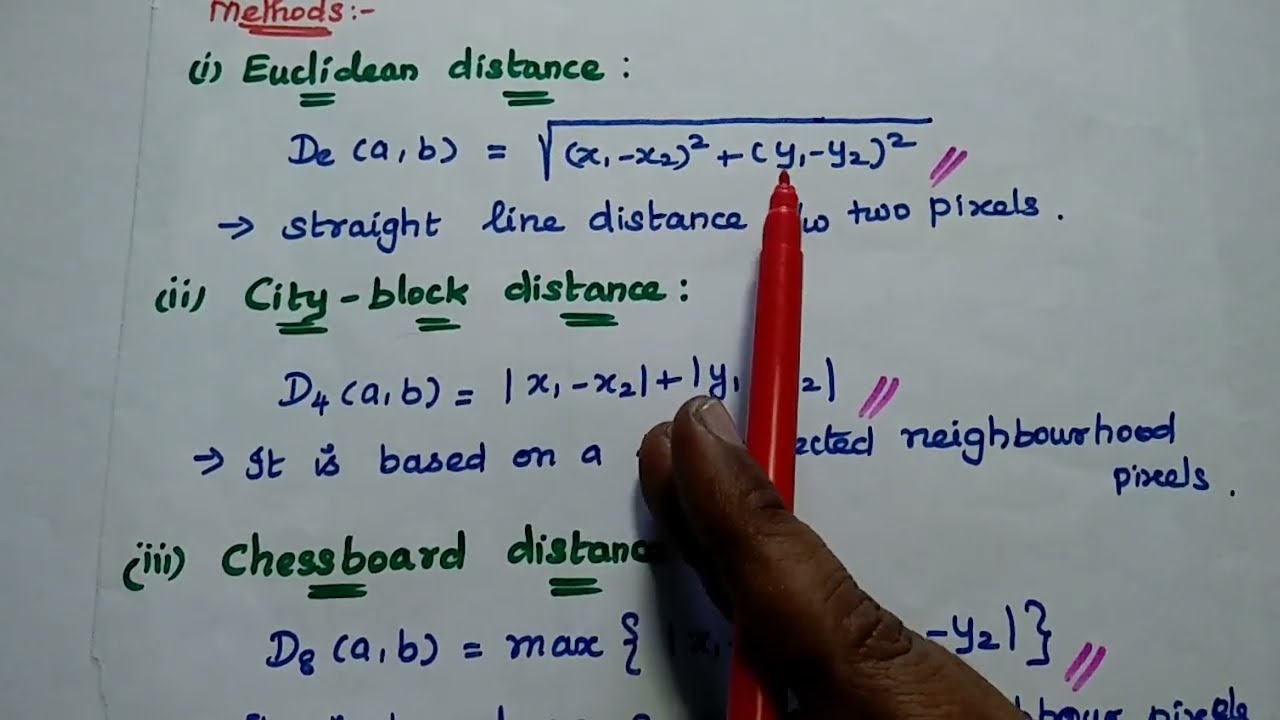 Methods:-
(i) Euclidean distance :
De (a, b) = √(x₁-x₂)² + (y₁-y₂)²
→ straight line distance two pixels.
(ii) City-block distance :
D₄ (a, b) = |x₁-x₂| + |y₁ 2|
→ It is based on a neighbourhood
pixels.
(iii) Chessboard distance
D₈ (a, b) = max { |x₁ -y₂| }
pixels